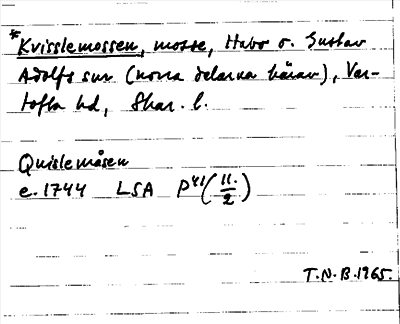 *Kvisslemossen, mosse, Habo o. Gustav
Adolfs snr (norra delarna härav), Var-
tofta hd, Skar. l.
Quislemåsen
e. 1744 LSA P41 (11/2)
T.N.B. 1965.